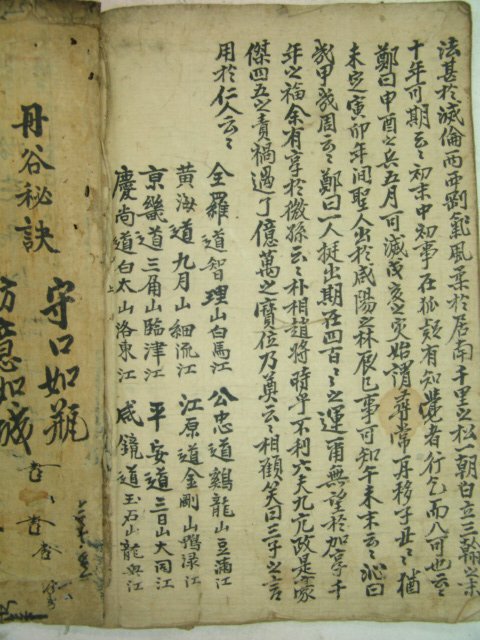 法甚於滅倫而西劉氣風柔於居南千里之松一朝白立三韓之末
十年可期云云初末中初事在狐頦有知覺者行之而八可也云云
鄭曰申酉之兵五月可滅戌亥之変始謂尋常再移子丑云云猶
未定寅卯年間聖人出於咸陽之林辰巳事可知午未末云云沁曰
幾甲幾周云云鄭曰一人挺出期在四百云云之運爾無望於加享千
年之福余有享於微孫云云朴相趙將時乎不利六夫九冗政是豪
傑四五之責禍過了億萬之寶位乃奠云云相顧笑曰三子之言
用於仁人云云
全羅道智理山白馬江 公忠道鷄龍山豆滿江
黃海道九月山細流江 江原道金剛山鴨淥江
京畿道三角山臨津江 平安道三日山大同江
慶尚道白太山洛東江 咸鏡道玉石山龍興江
丹谷秘訣
守口如瓶
防意如城